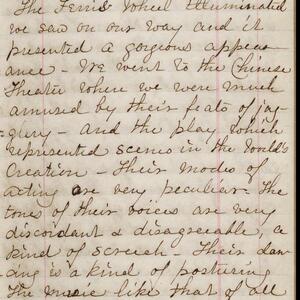 The Ferris Wheel Illuminated
we saw on our way and it
presented a gorgeous appear-
ance - We went to the Chinese
Theater where we were much
amused by their feats of jug-
=glery - and the play which
represented scenes in the World's
Creation - Their modes of
acting are very peculiar - The
tones of their voices are very
discordant & disagreeable, a
kind of screech - Their dan-
=cing is a kind of posturing
The music like that of all